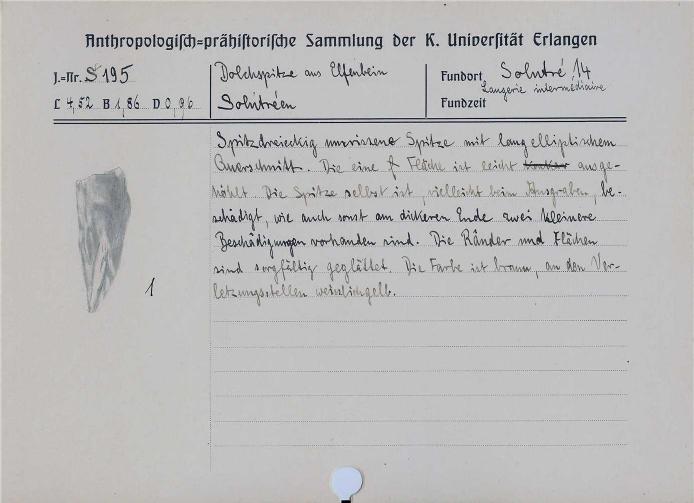 Anthropologisch=prähistorische Sammlung der K. Universität Erlangen
J.=Nr. S 195
Dolchspitze aus Elfenbein
Fundort Solutré 14
Laugerie intermédiaire
L 4,52 B 1,86 D 0,96
Solutréen
Fundzeit
Spitzdreieckig umrissene Spitze mit langelliptischem
Querschnitt. Die eine Fläche ist leicht ausge-
höhlt. Die Spitze selbst ist, vielleicht beim Ausgraben, be-
schädigt, wie auch sonst am dickeren Ende zwei kleinere
Beschädigungen vorhanden sind. Die Ränder und Flächen
sind sorgfältig geglättet. Die Farbe ist braun, an den Ver-
letzungsstellen weisslichgelb.
1